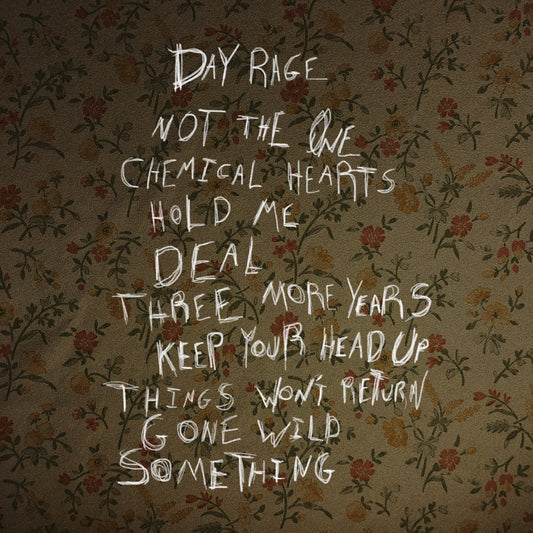 DAY RAGE
NOT THE ONE
CHEMICAL HEARTS
HOLD ME
DEAL
THREE MORE YEARS
KEEP YOUR HEAD UP
THINGS WON'T RETURN
GONE WILD
SOMETHING